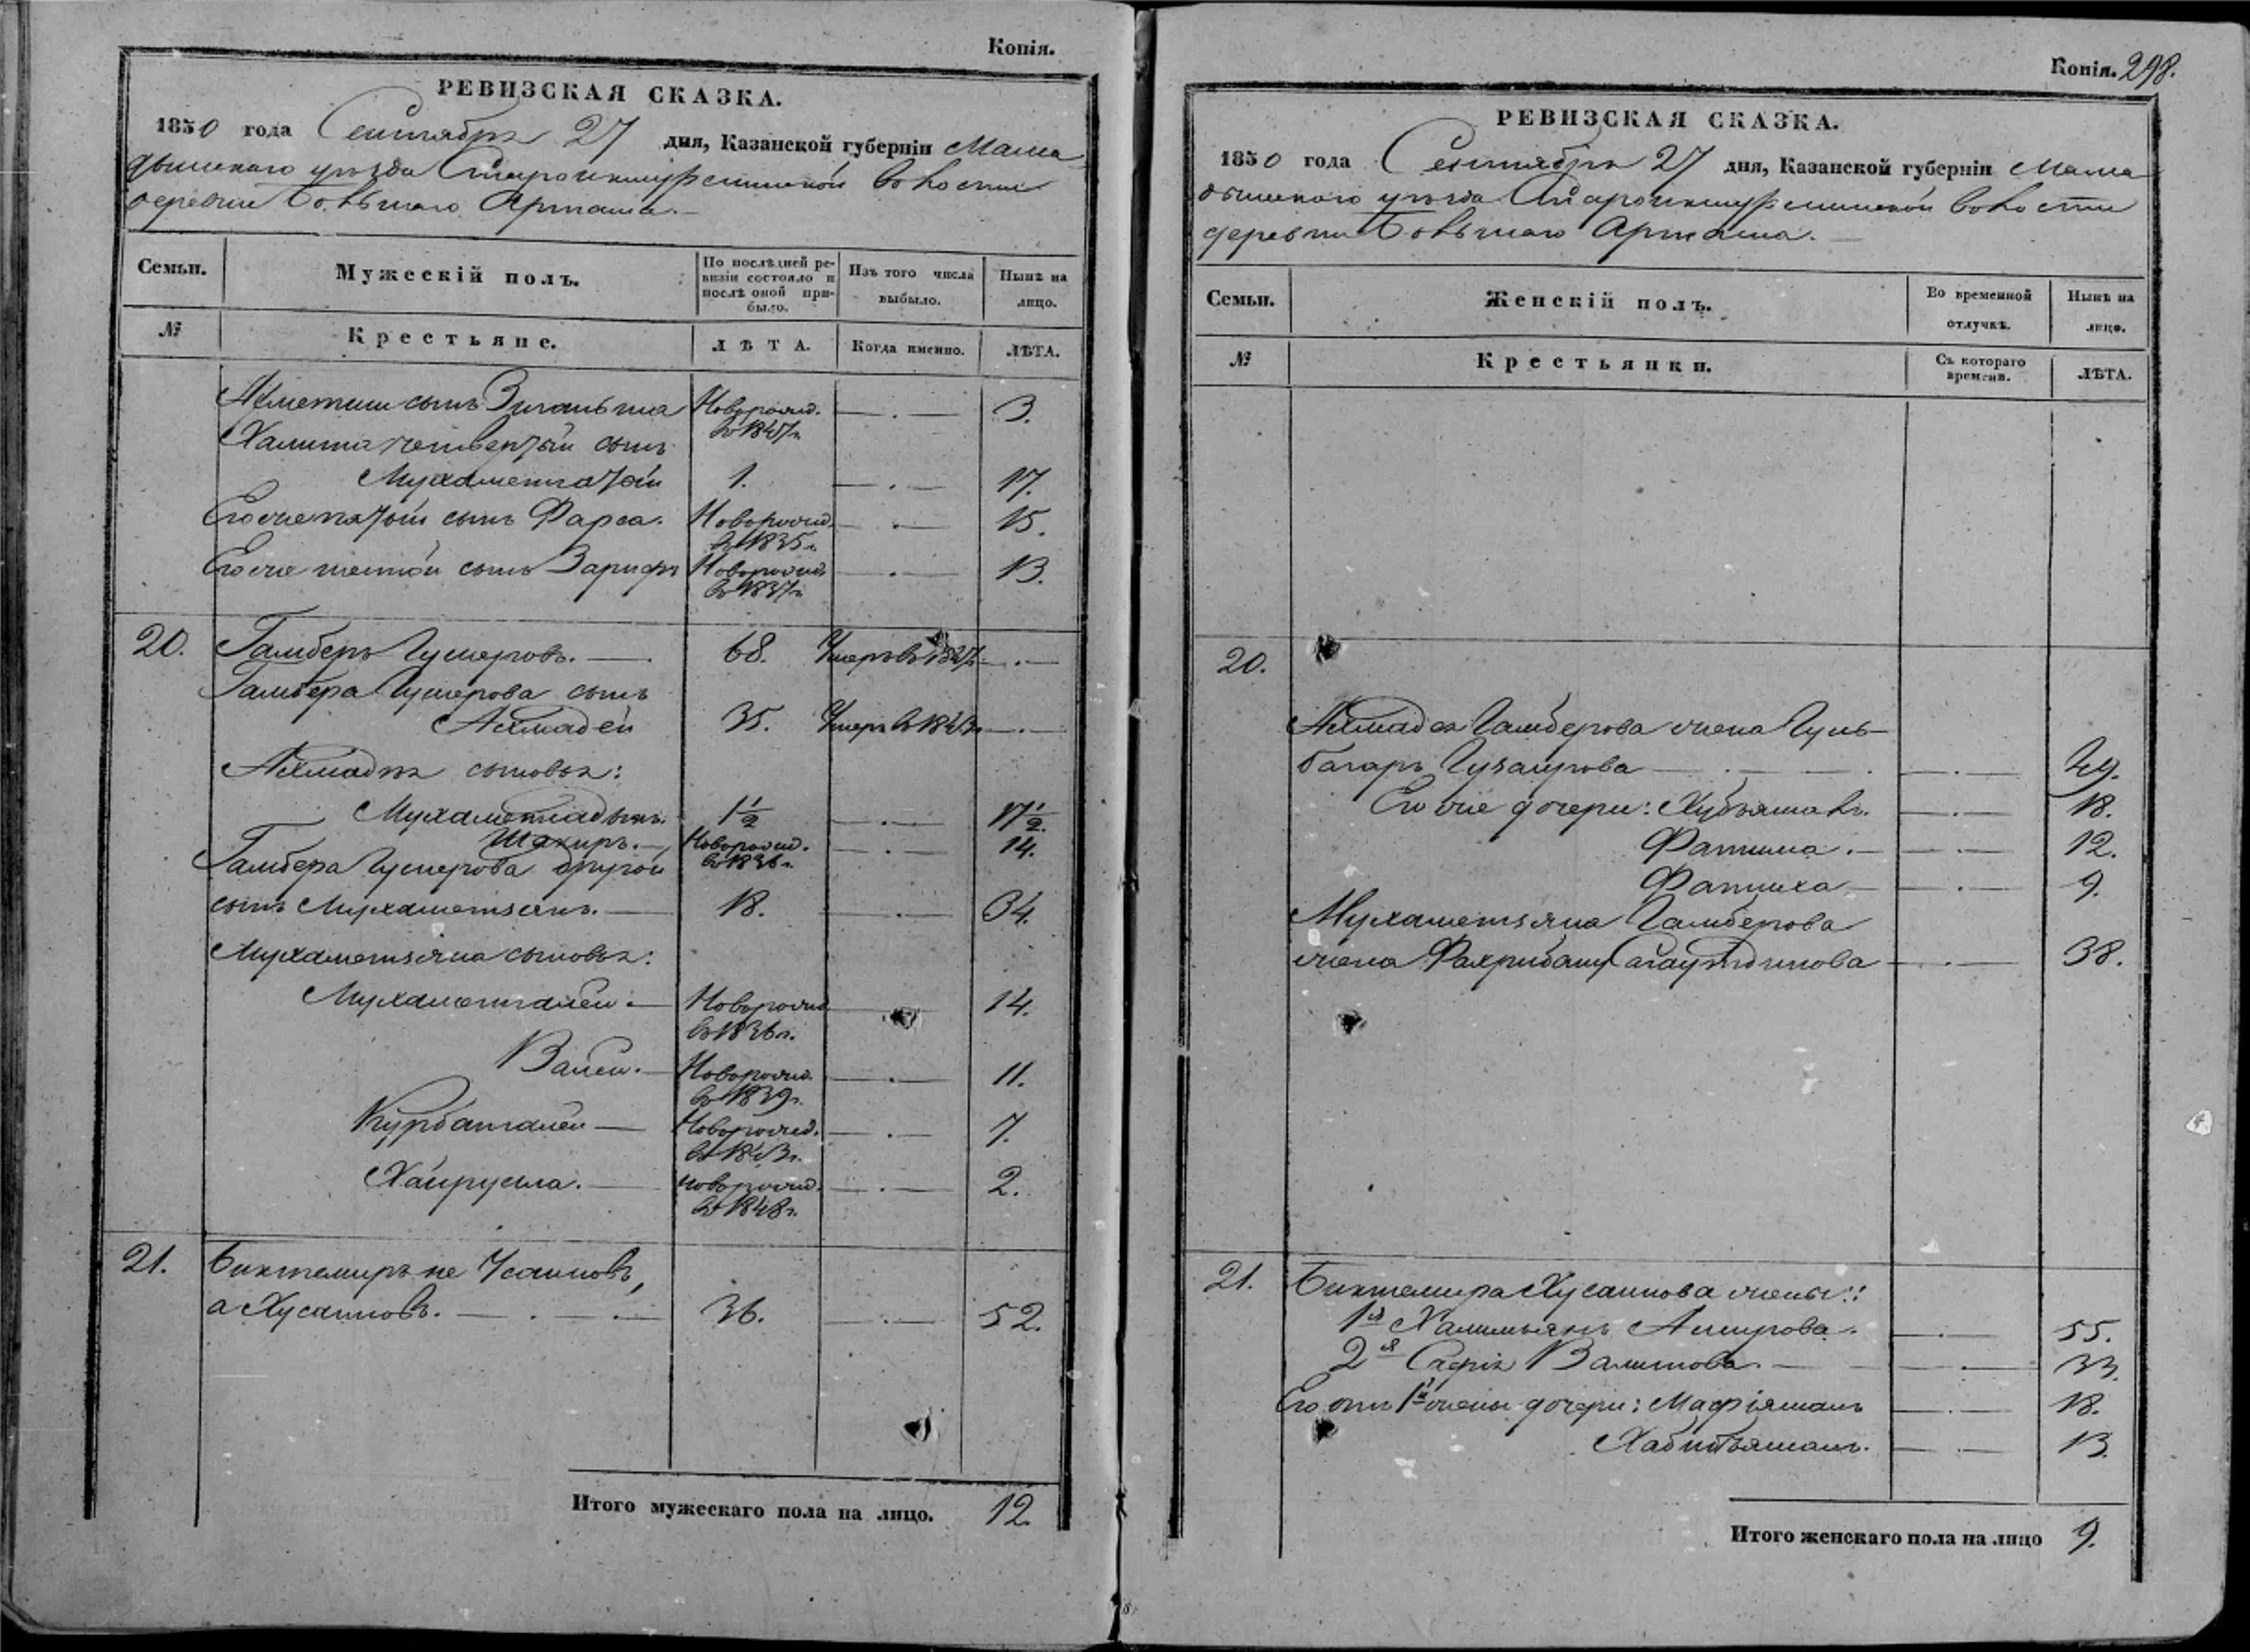 Копія.
РЕВИЗСКАЯ СКАЗКА.
1850 года Сентября 27 дня, Казанской губерніи Мама
дышскаго уѣзда Старо волости
деревни Большаго Арташа.
Семьи. Мужескій полъ. По послѣдней ре-
визіи состояло и
послѣ оной при-
было. Изъ того числа
выбыло. Нынѣ на
лицо.
№ Крестьяне. ЛѢТА. Когда именно. ЛѢТА.
сынъ Зиганьша Новорожд. 3.
въ 1847 г.
Халита четвертый сынъ
1. 17.
Его же пятый сынъ Фарса. Новорожд. 15.
въ 1835 г.
Его же шестой сынъ Зарифъ Новорожд. 13.
въ 1837 г.
20. Гамберъ Гумеровъ. 68. Умеръ въ
Гамбера Гумерова сынъ
Ахмадей 35. Умеръ въ 1843 г.
Ахмадея сыновья:
1 1/2 17 1/2.
Шакиръ. Новорожд. 14.
въ 1836 г.
Гамбера Гумерова другой
сынъ Мухаметзянъ. 18. 34.
Мухаметзяна сыновья:
Мухаметгалей Новорожд. 14.
въ 1836 г.
Валей. Новорожд. 11.
въ 1839 г.
Курбангалей Новорожд. 7.
въ 1843 г.
Хайрулла. новорожд. 2.
въ 1848 г.
21. Биктемиръ не Усаиновъ,
а Хусаиновъ. 36. 52.
Итого мужескаго пола на лицо. 12.
Копія. 298.
РЕВИЗСКАЯ СКАЗКА.
1850 года Сентября 27 дня, Казанской губерніи Мама
дышскаго уѣзда Старо волости
деревни Большаго Арташа.
Семьи. Женскій полъ. Во временной
отлучкѣ. Нынѣ на
лицо.
№ Крестьянки. Съ котораго
времени. ЛѢТА.
20.
Ахмадея Гамберова жена Гуль
багаръ Гузаирова 49.
Его же дочери: 18.
Фатима. 12.
Фатиха 9.
Мухаметзяна Гамберова
жена Фахрибану 38.
21. Биктемира Хусаинова жены:
1я Амирова. 55.
2я Сафія Валитова. 33.
Его отъ 1й жены дочери: 18.
13.
Итого женскаго пола на лицо 9.